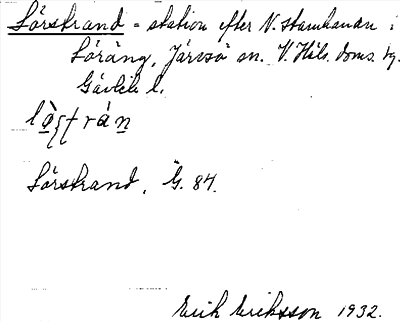 Lörstrand = station efter N. stambanan i
Löräng, Järvsö sn. V. Häls. doms. tg.
Gävleb. l.
Lörstrand, G. 84.
Erik Eriksson 1932.